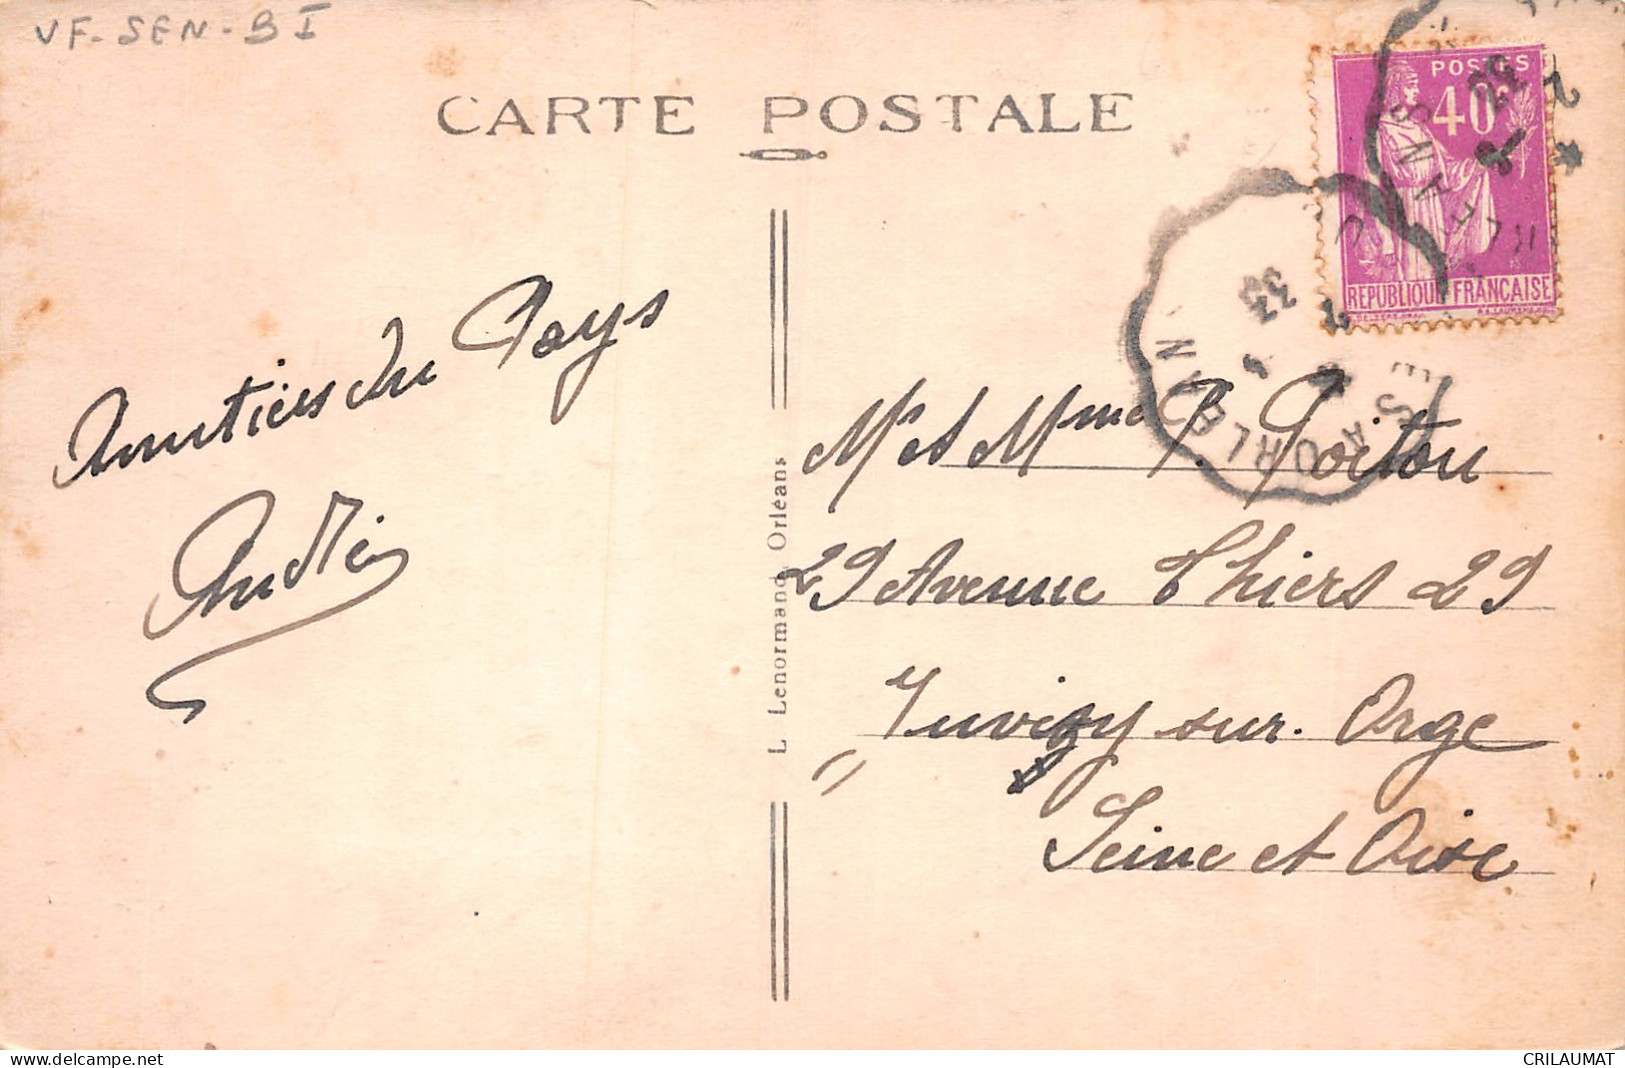 VF-SEN-BI
CARTE POSTALE
POSTES
40c
REPUBLIQUE FRANÇAISE
33
ORLEAN
Amitiés du Pays
André
L. Lenormand, Orléans
Mr et Mme P. Poitou
29 Avenue Thiers 29
Juvisy sur-Orge
Seine et Oise
www.delcampe.net
CRILAUMAT